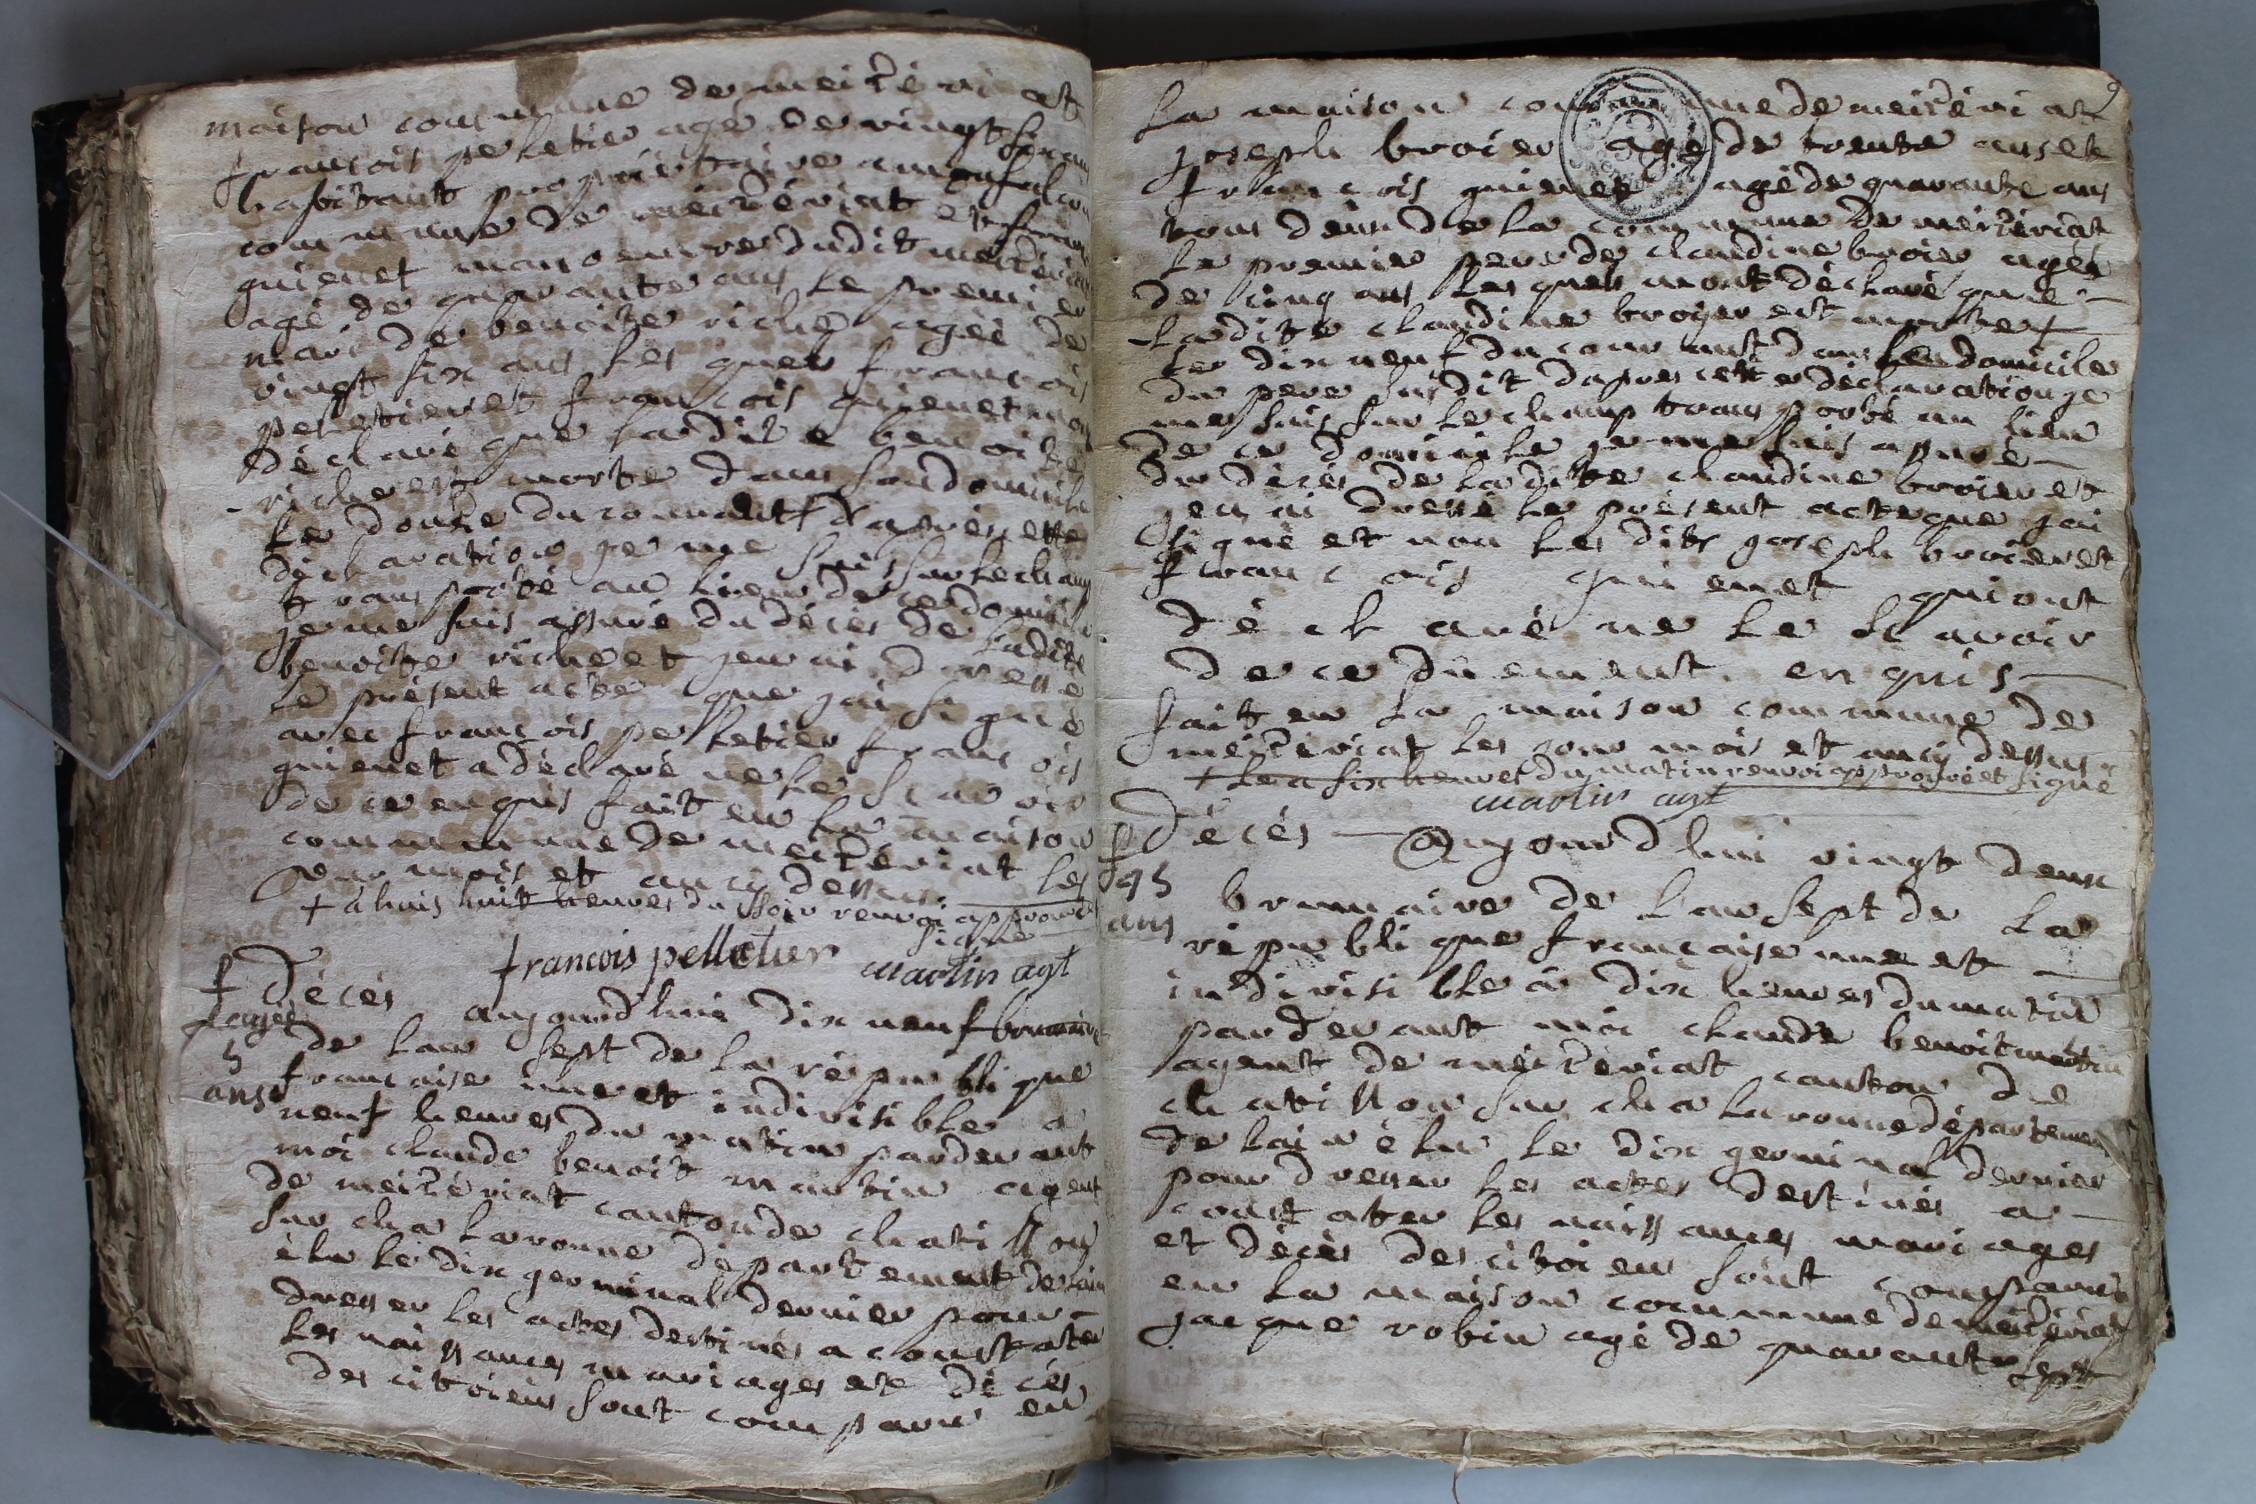 maison commune de meizériat
françois peletier agé de vingt six ans
habitant propriétaire a
commune de meizériat et françois
guienet manoeuvre dudit meizériat
agé de quarante ans le premier
mari de benoite riche agéé de
vingt six ans les quels françois
peletier et françois guienet mont
déclaré que ladite benoite
riche est morte dans son domicile
le douze du courrant + dapres cette
déclaration je me suis sur le champ
transporté au lieu de ce domicile
je me suis assuré du décés de ladite
benoite riche et jen ai dressé
le présent acte que jai signé
avec françois pelletier françois
guienet a déclaré ne le scavoir
de ce enquis fait en la maison
commune de meizériat les
jour mois et an ci dessus
+ a huit heures du soir renvoi approuvé
signé
francois pelletier martin agt
f Décés aujourdhui dix neuf brumaire
agéé de lan sept de la république
5 française une et indivisible a
ans neuf heures du matin pardevant
moi claude benoit martin agent
de meizériat canton de chatillon
sur chalaronne département de lain
élu le dix germinal dernier pour
dresser les actes destinés a constater
les naissances mariages et décés
des citoiens sont comparu en
9
la maison commune de meizériat
joseph broier agé de trente ans et
françois guienet agé de quarante ans
tous deux de la commune de meizériat
le premier pere de claudine broier agéé
de cinq ans les quels mont déclaré que
ladite claudine broyer est morte +
le dix neuf du courrant dans le domicile
du pere susdit dapres cette déclaration je
me suis sur le champ transporté au lieu
de ce domicile je me suis assuré
du décés de ladite claudine broier et
jen ai dressé le présent acte que jai
signé et non les dits joseph broier et
françois guienet qui ont
déclaré ne le scavoir
de ce duement enquis
fait en la maison commune de
meizériat les jour mois et an ci dessus
+ le a six heures du matin renvoi approuvé et signé
martin agt
f Décés Aujourdhui vingt deux
45 brumaire de lan sept de la
ans république française une et
indivisible a dix heures du matin
pardevant moi claude benoit martin
agent de meizériat canton de
chatillon sur chalaronne département
de lain élu le dix germinal dernier
pour dresser les actes destinés a
constater les naissances mariages
et décés des citoiens sont comparu
en la maison commune de meizériat
jacque robin agé de quarante sept